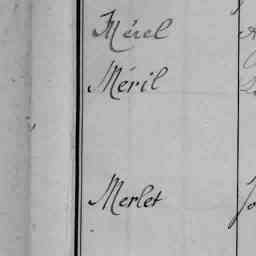 Mérel
Méril
Merlet